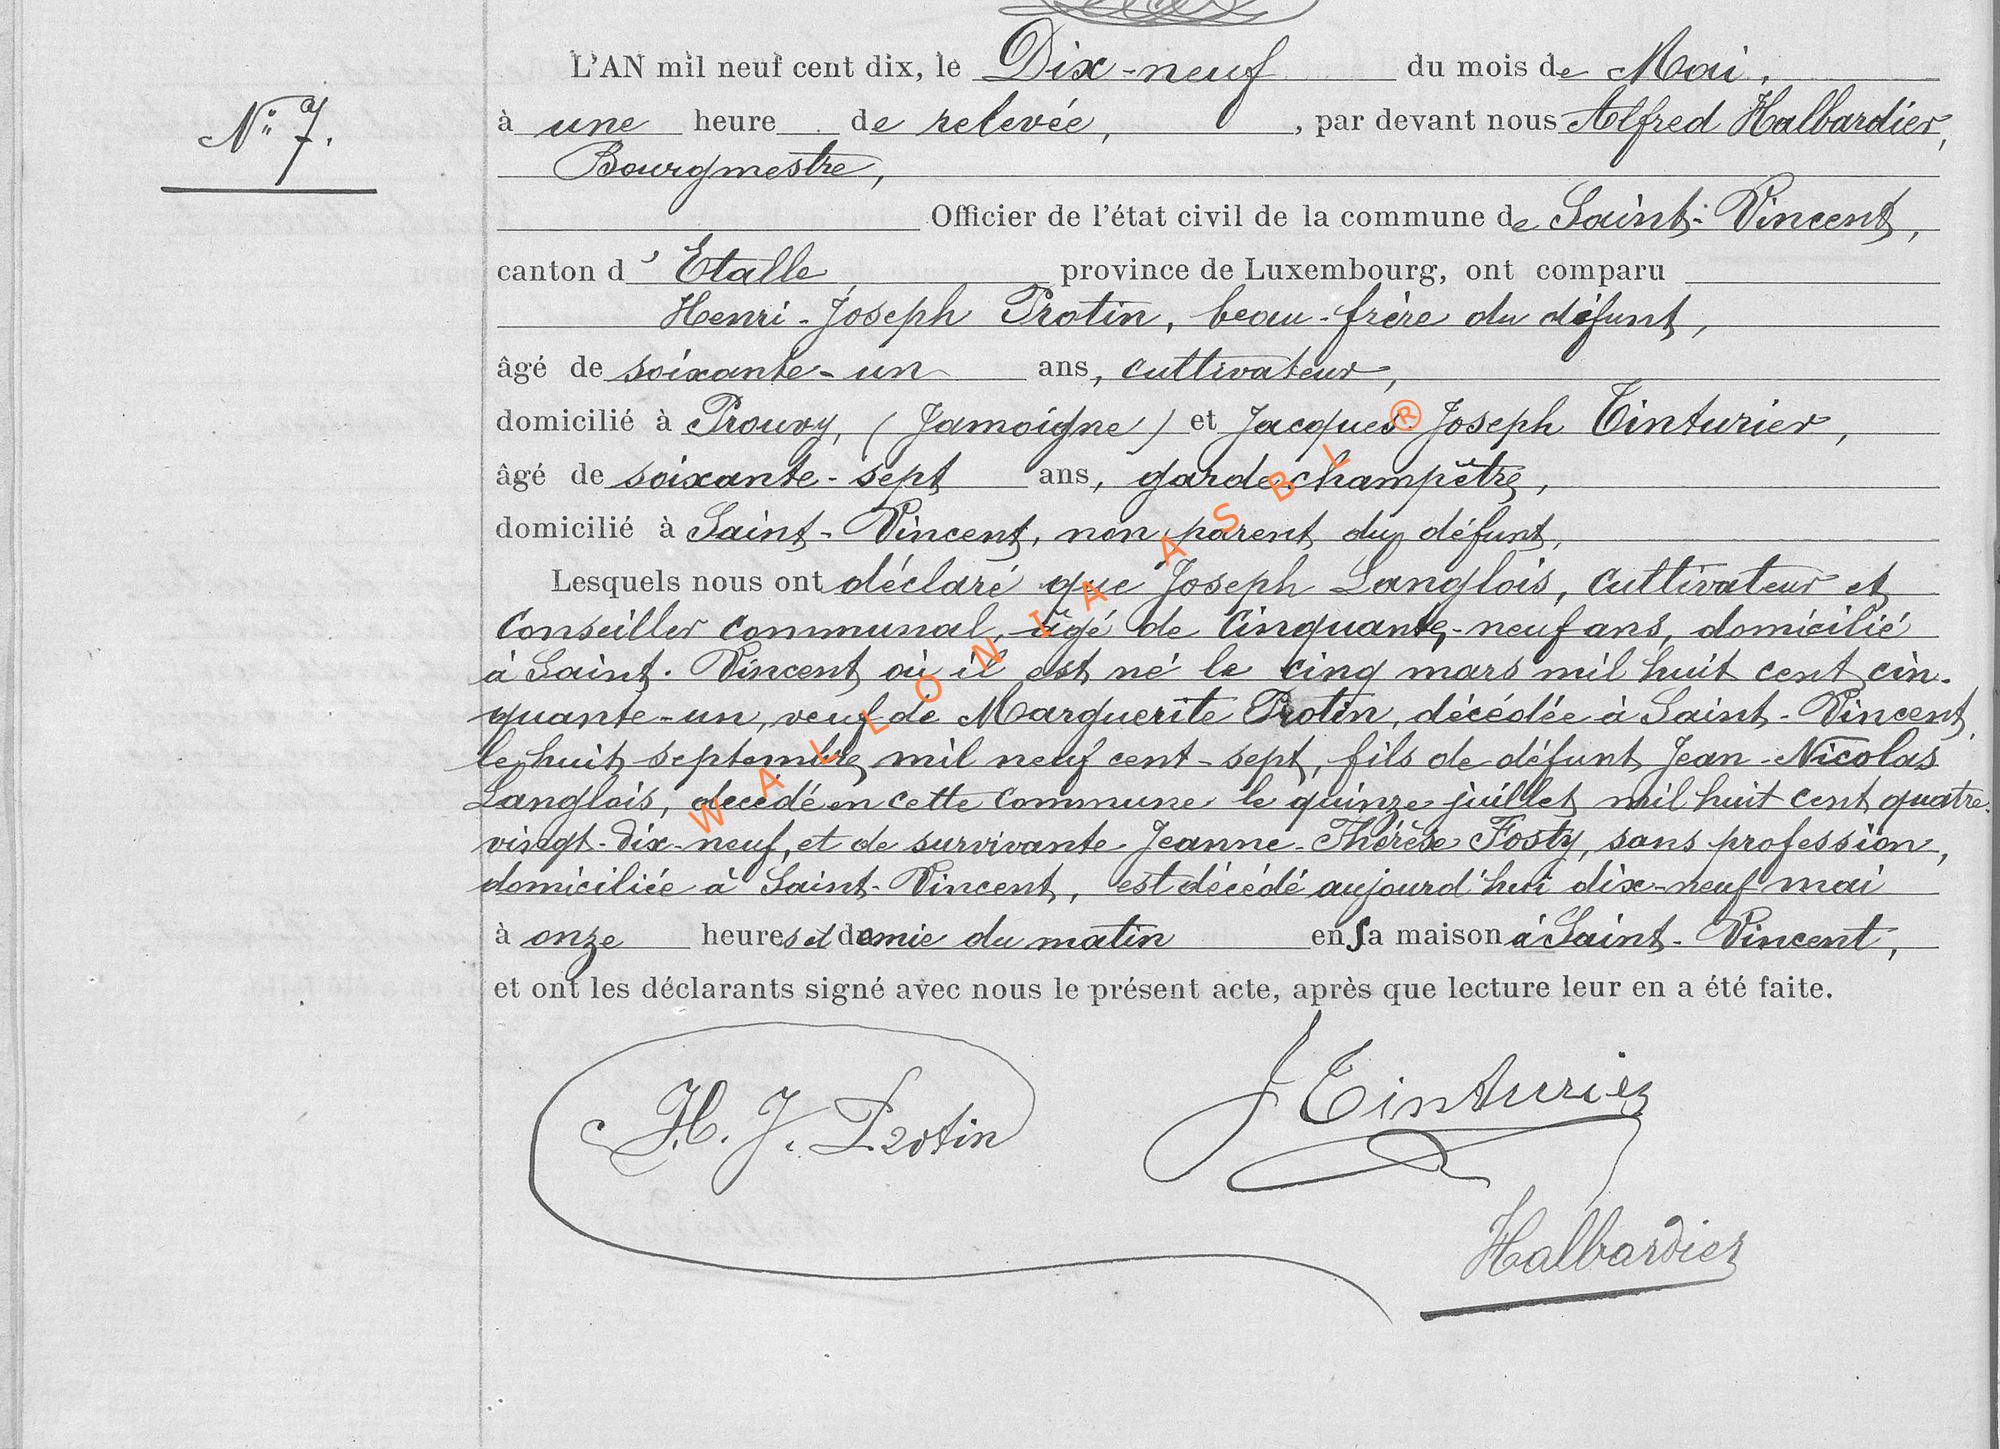 L'AN mil neuf cent dix, le Dix-neuf du mois de Mai,
N° 7.
à une heure de relevée, , par devant nous Alfred Halbardier,
Bourgmestre,
Officier de l'état civil de la commune de Saint-Vincent,
canton d'Etalle, province de Luxembourg, ont comparu
Henri-Joseph Protin, beau-frère du défunt,
âgé de soixante-un ans, cultivateur,
domicilié à Prouvy, (Jamoigne) et Jacques-Joseph Tinturier,
âgé de soixante-sept ans, garde champêtre,
domicilié à Saint-Vincent, non parent du défunt,
Lesquels nous ont déclaré que Joseph Langlois, cultivateur et
Conseiller communal, âgé de cinquante-neuf ans, domicilié
à Saint-Vincent où il est né le cinq mars mil huit cent cin-
quante-un, veuf de Marguerite Protin, décédée à Saint-Vincent,
le huit septembre mil neuf cent-sept, fils de défunt Jean-Nicolas
Langlois, décédé en cette commune le quinze juillet mil huit cent quatre-
vingt-dix-neuf, et de survivante Jeanne-Thérèse Fosty, sans profession,
domiciliée à Saint-Vincent, est décédé aujourd'hui dix-neuf mai
à onze heures et demie du matin en sa maison à Saint-Vincent,
et ont les déclarants signé avec nous le présent acte, après que lecture leur en a été faite.
H. J. Protin
J Tinturier
Halbardier
WALLONIA ASBL®